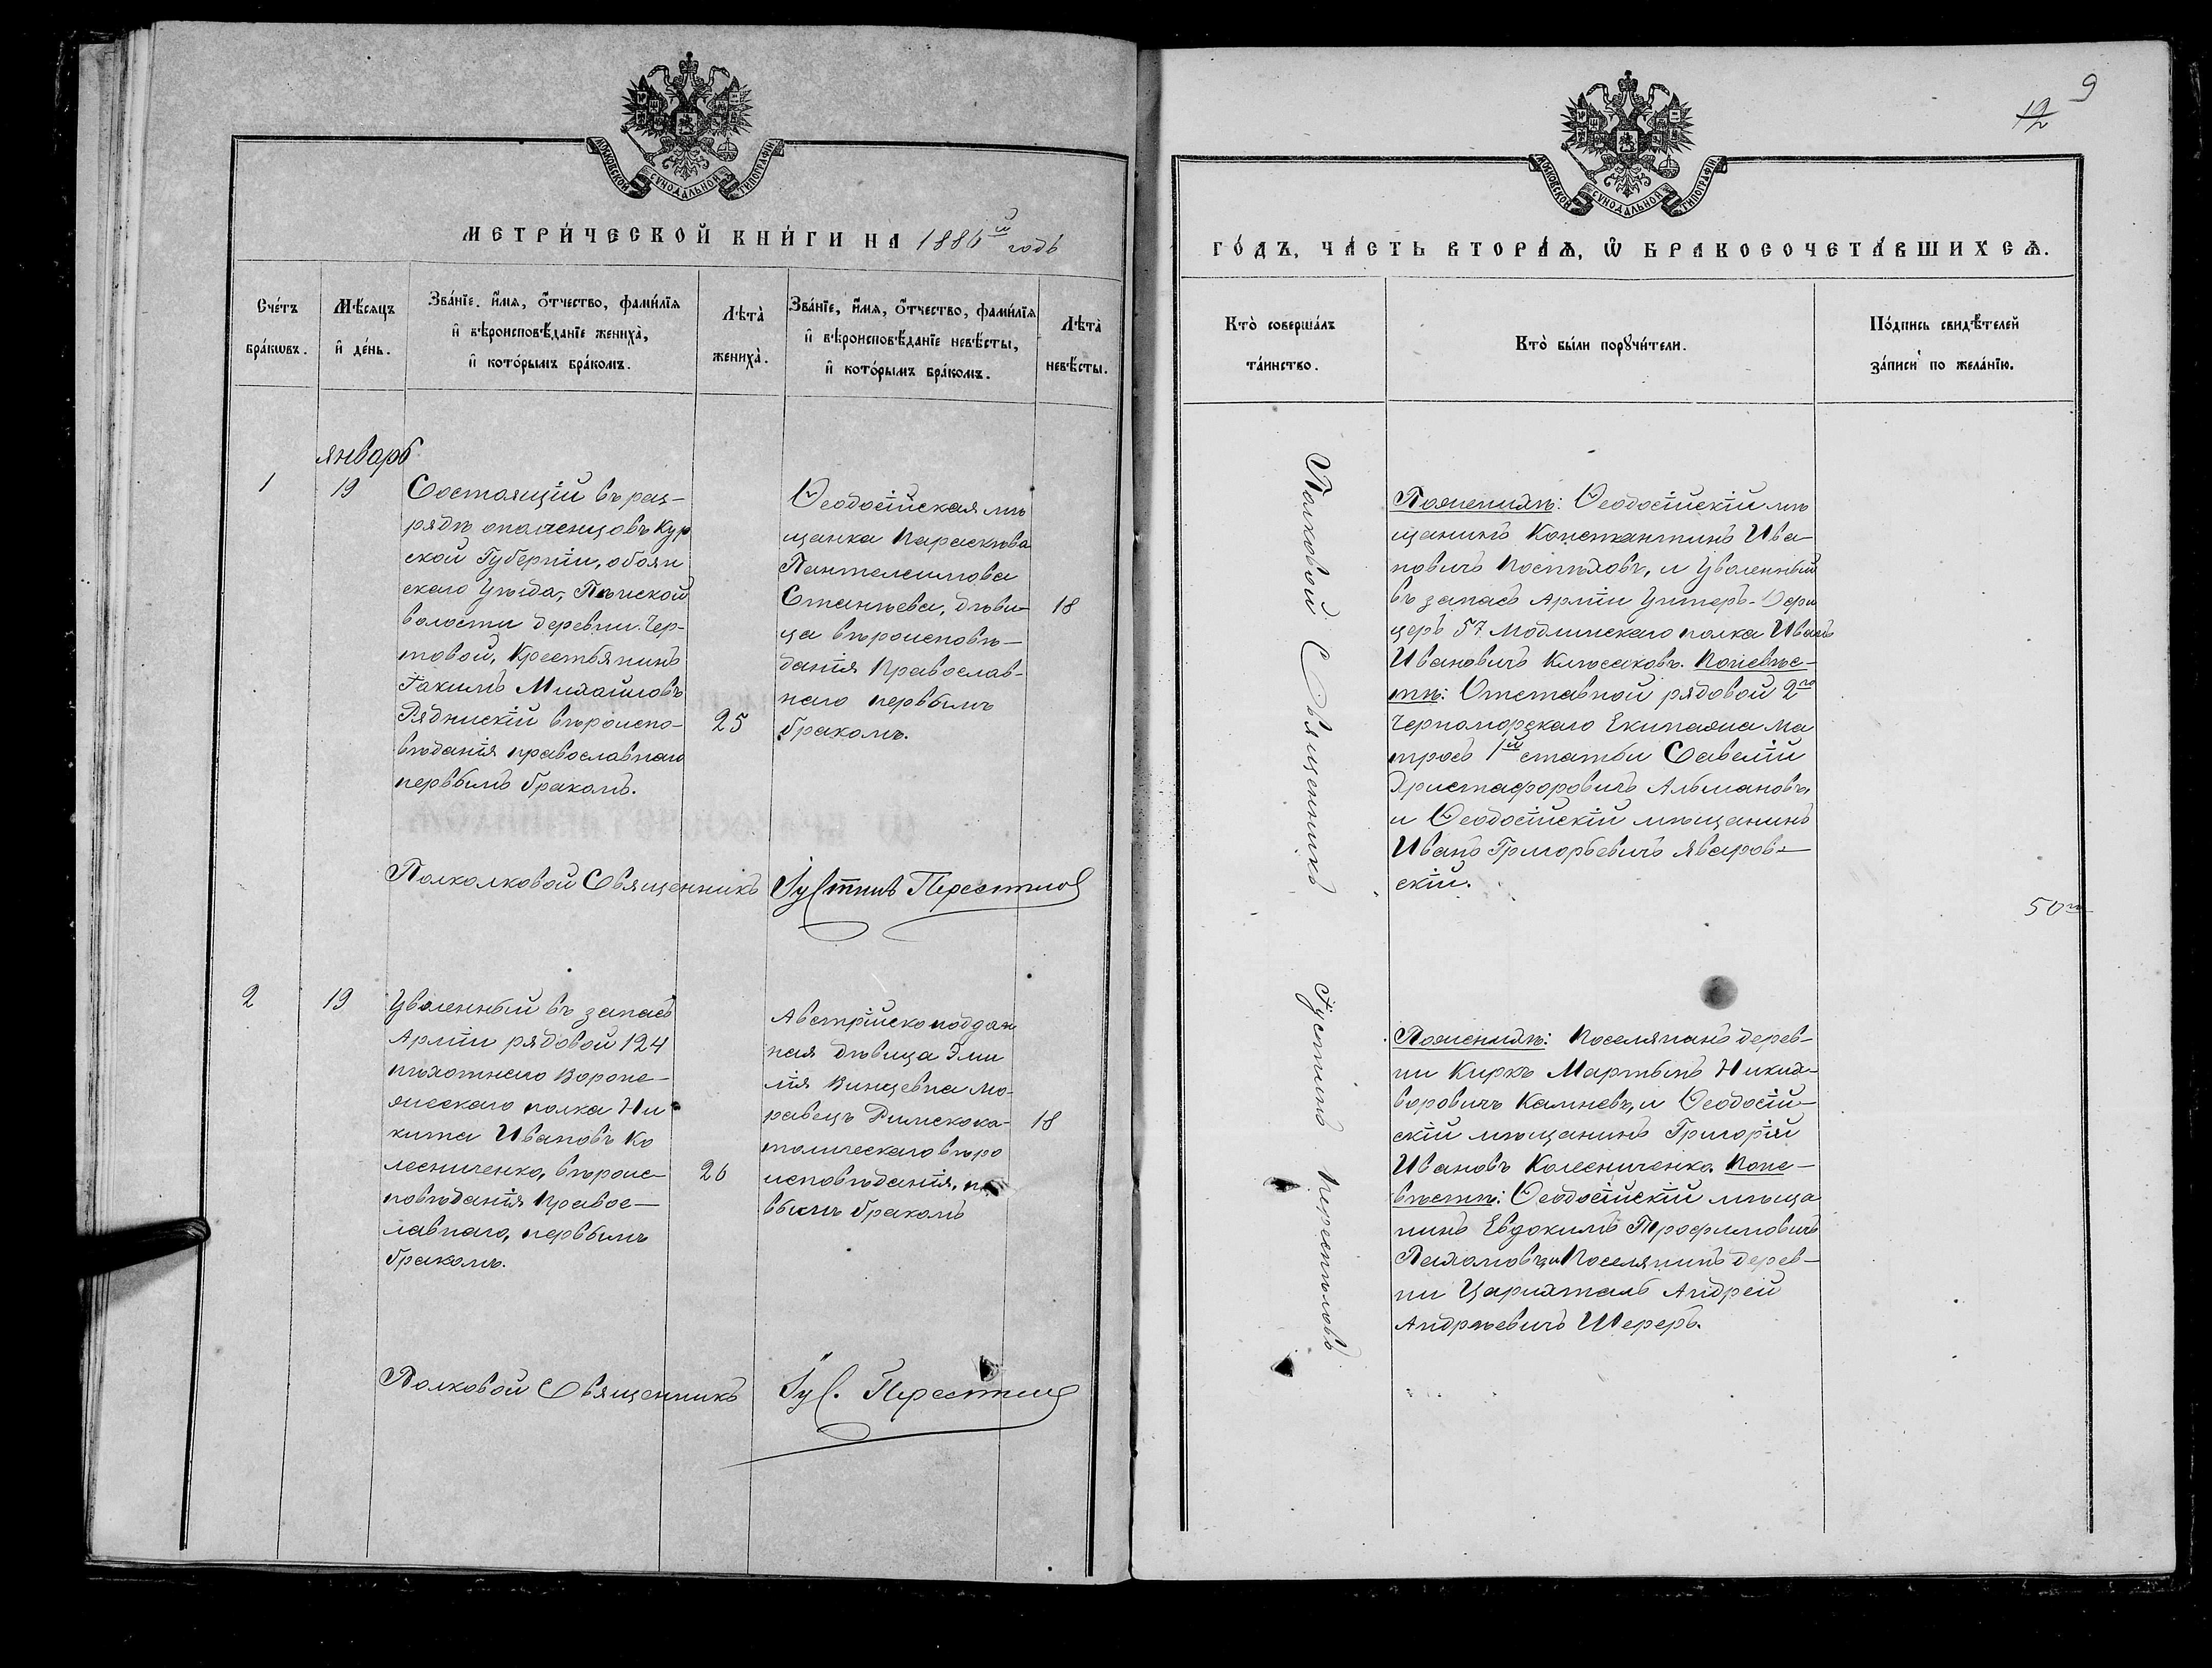 МОСКОВСКОЙ СѴНОДАЛЬНОЙ ТИПОГРАФІИ
МЕТРИ́ЧЕСКОЙ КНИ́ГИ НА 1886й годъ
Сче́тъ бра́кѡвъ.
Мѣ́сяцъ и҆ де́нь.
Зва́нїе. и҆́мя, ѻ҆́тчество, фами́лїя
и҆ вѣроисповѣ́данїе жениха̀,
и҆ кото́рымъ бра́комъ.
Лѣта̀ жениха̀.
Зва́нїе, и҆́мя, ѻ҆́тчество, фами́лїя
и҆ вѣроисповѣ́данїе невѣ́сты,
и҆ кото́рымъ бра́комъ.
Лѣта̀ невѣ́сты.
январь
1
19
Состоящій въ раз-
рядѣ ополченцовъ Кур
ской Губерніи, обоян
скаго Уѣзда,
волости деревни Чер-
товой, Крестьянинъ
Іакимъ Михаиловъ
вѣроиспо-
вѣданія православнаго
первымъ бракомъ.
25
Ѳеодосійская мѣ
щанка Параскѣва
Пантелеимова
Стантѣева, дѣви-
ца вѣроисповѣ-
данія Православ-
наго первымъ
бракомъ.
18
Полковой Священникъ Іустинъ
2
19
Уволенный въ запасъ
Арміи рядовой 124
пѣхотнаго Вороне-
жескаго полка Ни
кита Ивановъ Ко
лесниченко, вѣроис-
повѣданія Правос-
лавнаго, первымъ
бракомъ.
26
Австрійскоподдан
ная дѣвица Эми
лія Винцевна Мо-
равецъ Римскока-
толическаго вѣро
исповѣданія, пе
рвымъ бракомъ
18
Полковой Священникъ Іус.
9
12
МОСКОВСКОЙ СѴНОДАЛЬНОЙ ТИПОГРАФІИ
ГО́ДЪ, ЧА́СТЬ ВТОРА́Ѧ, Ѽ БРАКОСОЧЕТА́ВШИХСѦ.
Кто̀ соверша́лъ
та́инство.
Кто̀ бы́ли порꙋчи́тели.
По́дпись свидѣ́телей
за́писи по жела́нїю.
Полковой Священникъ Іустинъ Перестѣловъ
По женихѣ: Ѳеодосійскій мѣ
щанинъ Константинъ Ива-
новичъ Поспѣловъ, и Уволенный
въ запасъ Арміи Унтеръ-Офи
церъ 57 Модлинскаго полка Иванъ
Ивановичъ Клѣсаковъ. По невѣс-
тѣ: Отставной рядовой 2го
Черноморскаго Екипажа Ма
тросъ 1й статьи Савелій
Христафоровичъ Альмановъ,
и Ѳеодосійскій мѣщанинъ
Иванъ Григорьевичъ Яваров-
скій.
50
По женихѣ: Поселянинъ дерев-
ни Киркъ Мартынъ
Камневъ, и Ѳеодосій-
скій мѣщанинъ Григорій
Ивановъ Колесниченко. По не-
вѣстѣ: Ѳеодосійскій мѣща
нинъ Евдокимъ Трофимовичъ
Пахомовъ и Поселянинъ дерев-
ни Цариxталь Андрей
Андрѣевичъ Шереръ.